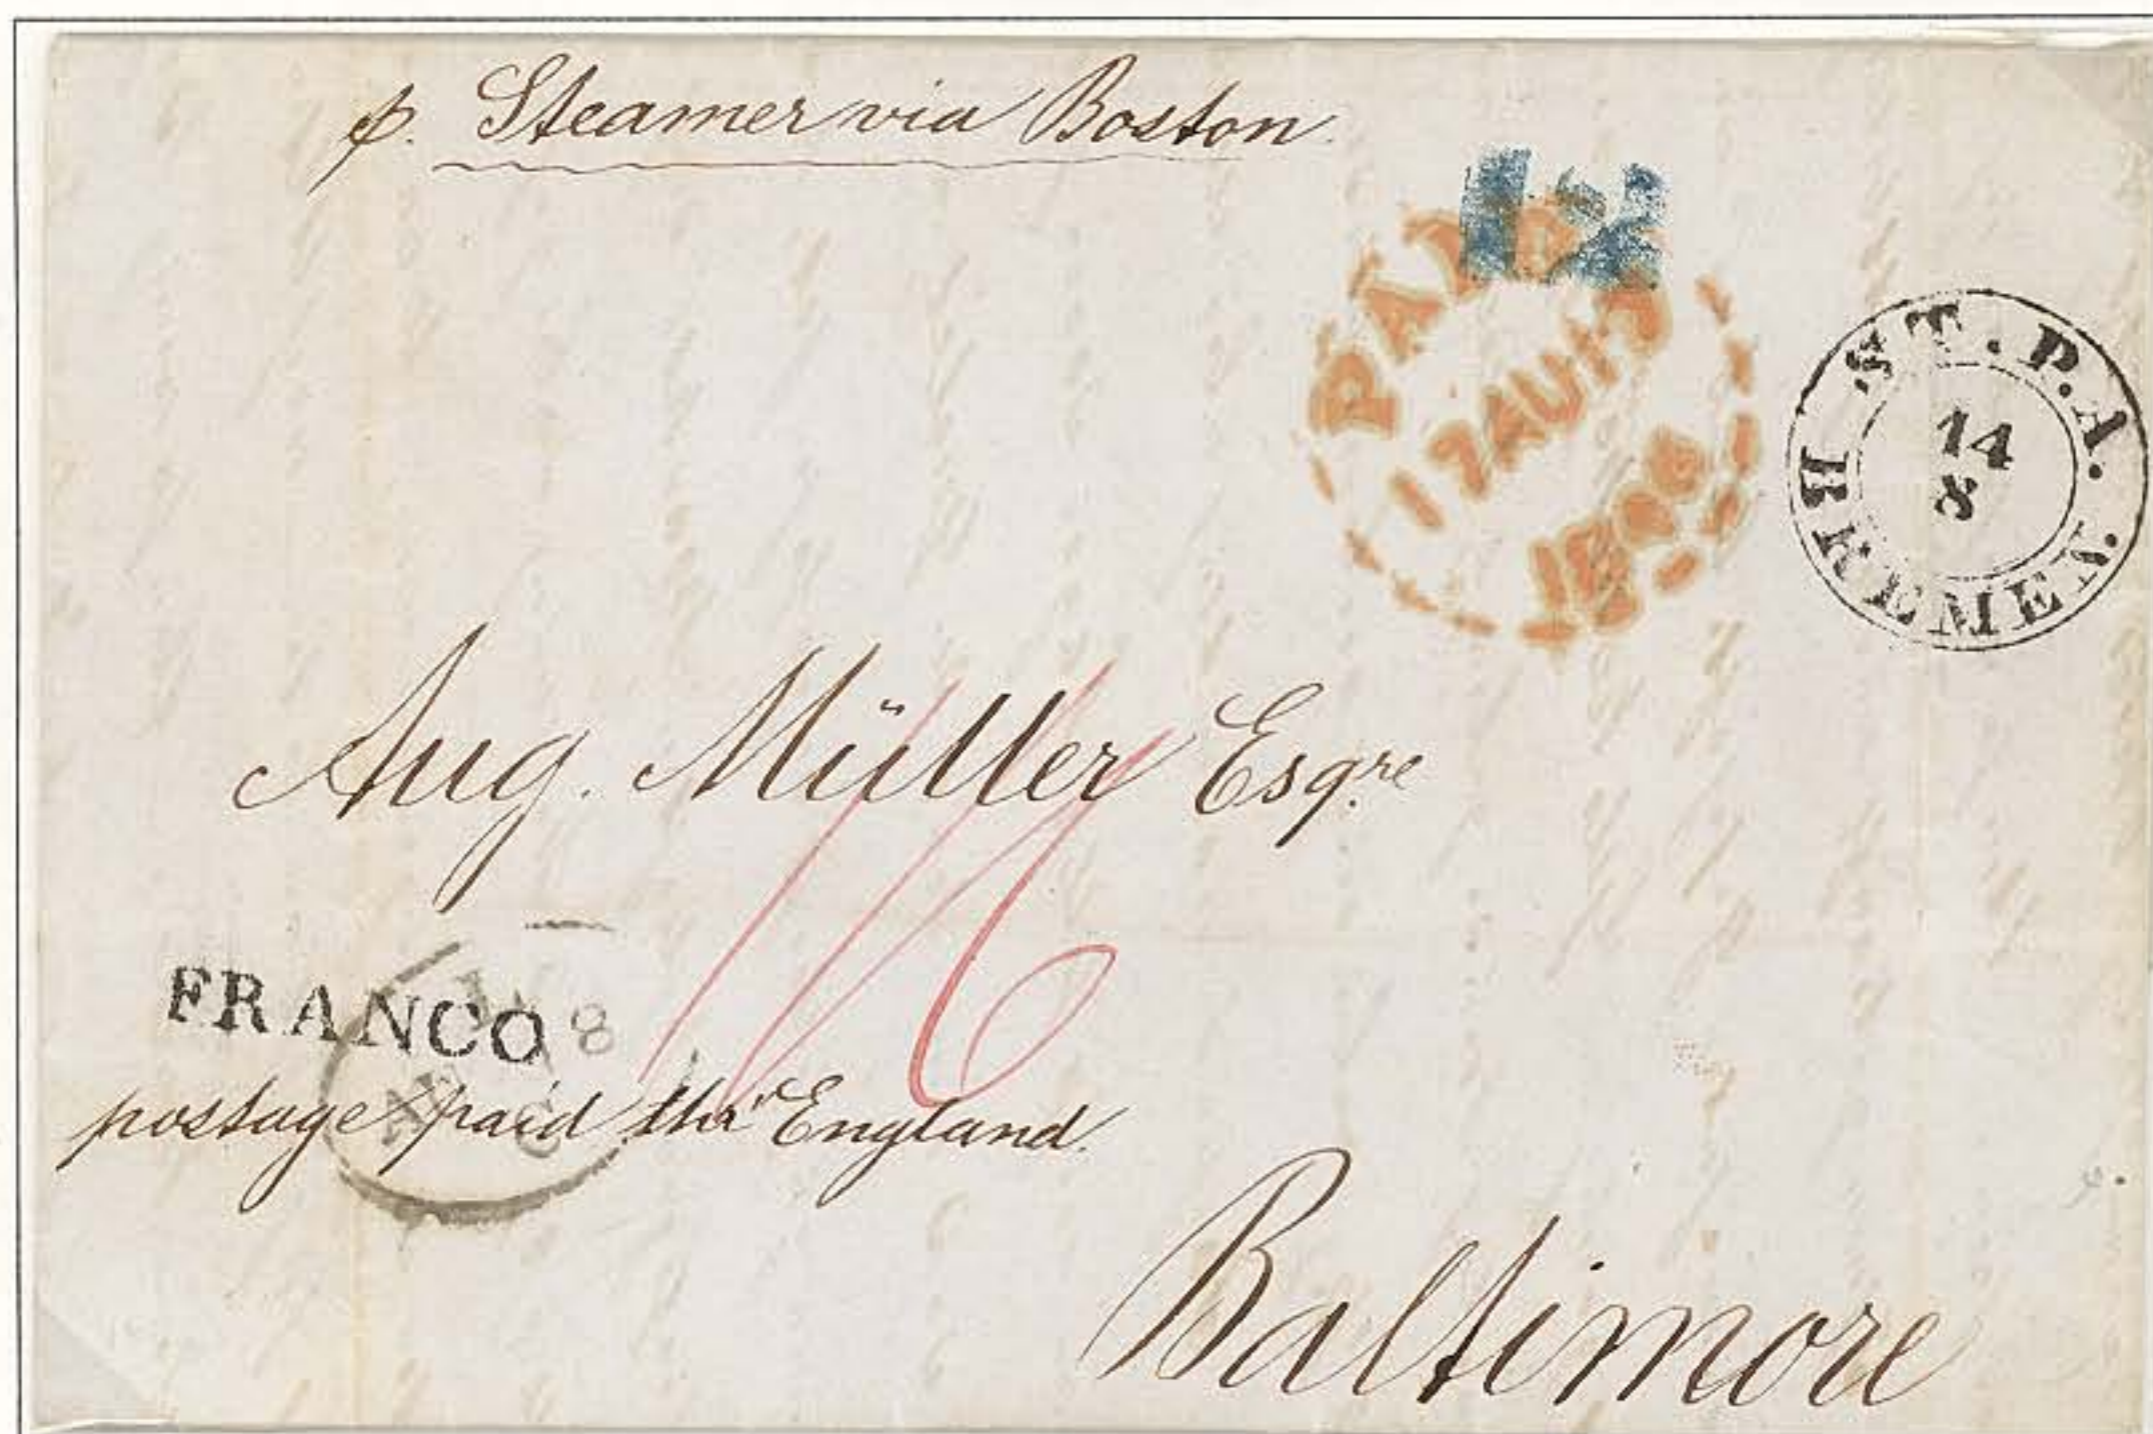 p. Steamer via Boston.
12
PAID
17 AU 17
ST. P. A.
14
8
BREMEN.
Aug. Müller Esqre
1/6
FRANCO
8
postage paid thr England.
Baltimore